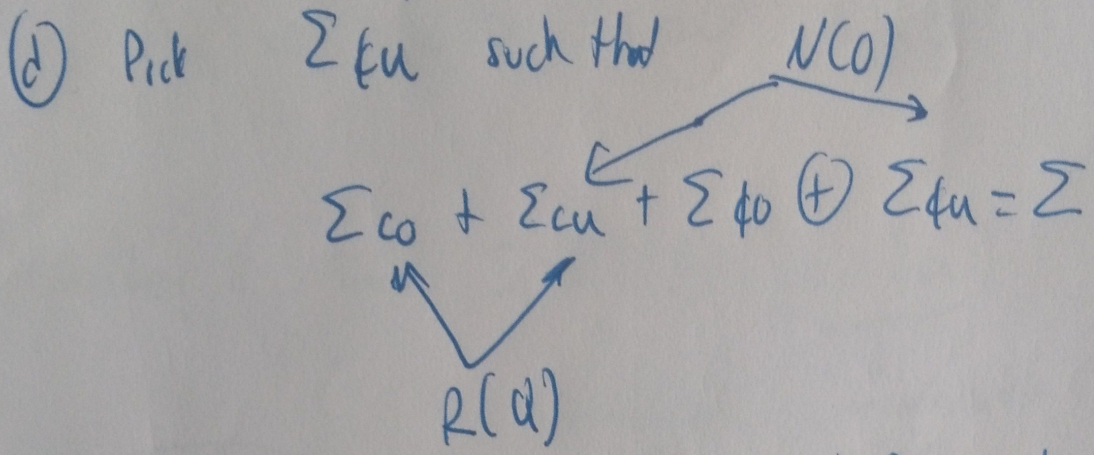 (d) Pick Σ¢u such that N(O)
Σco + Σcu + Σ¢o ⊕ Σ¢u = Σ
R(Q)